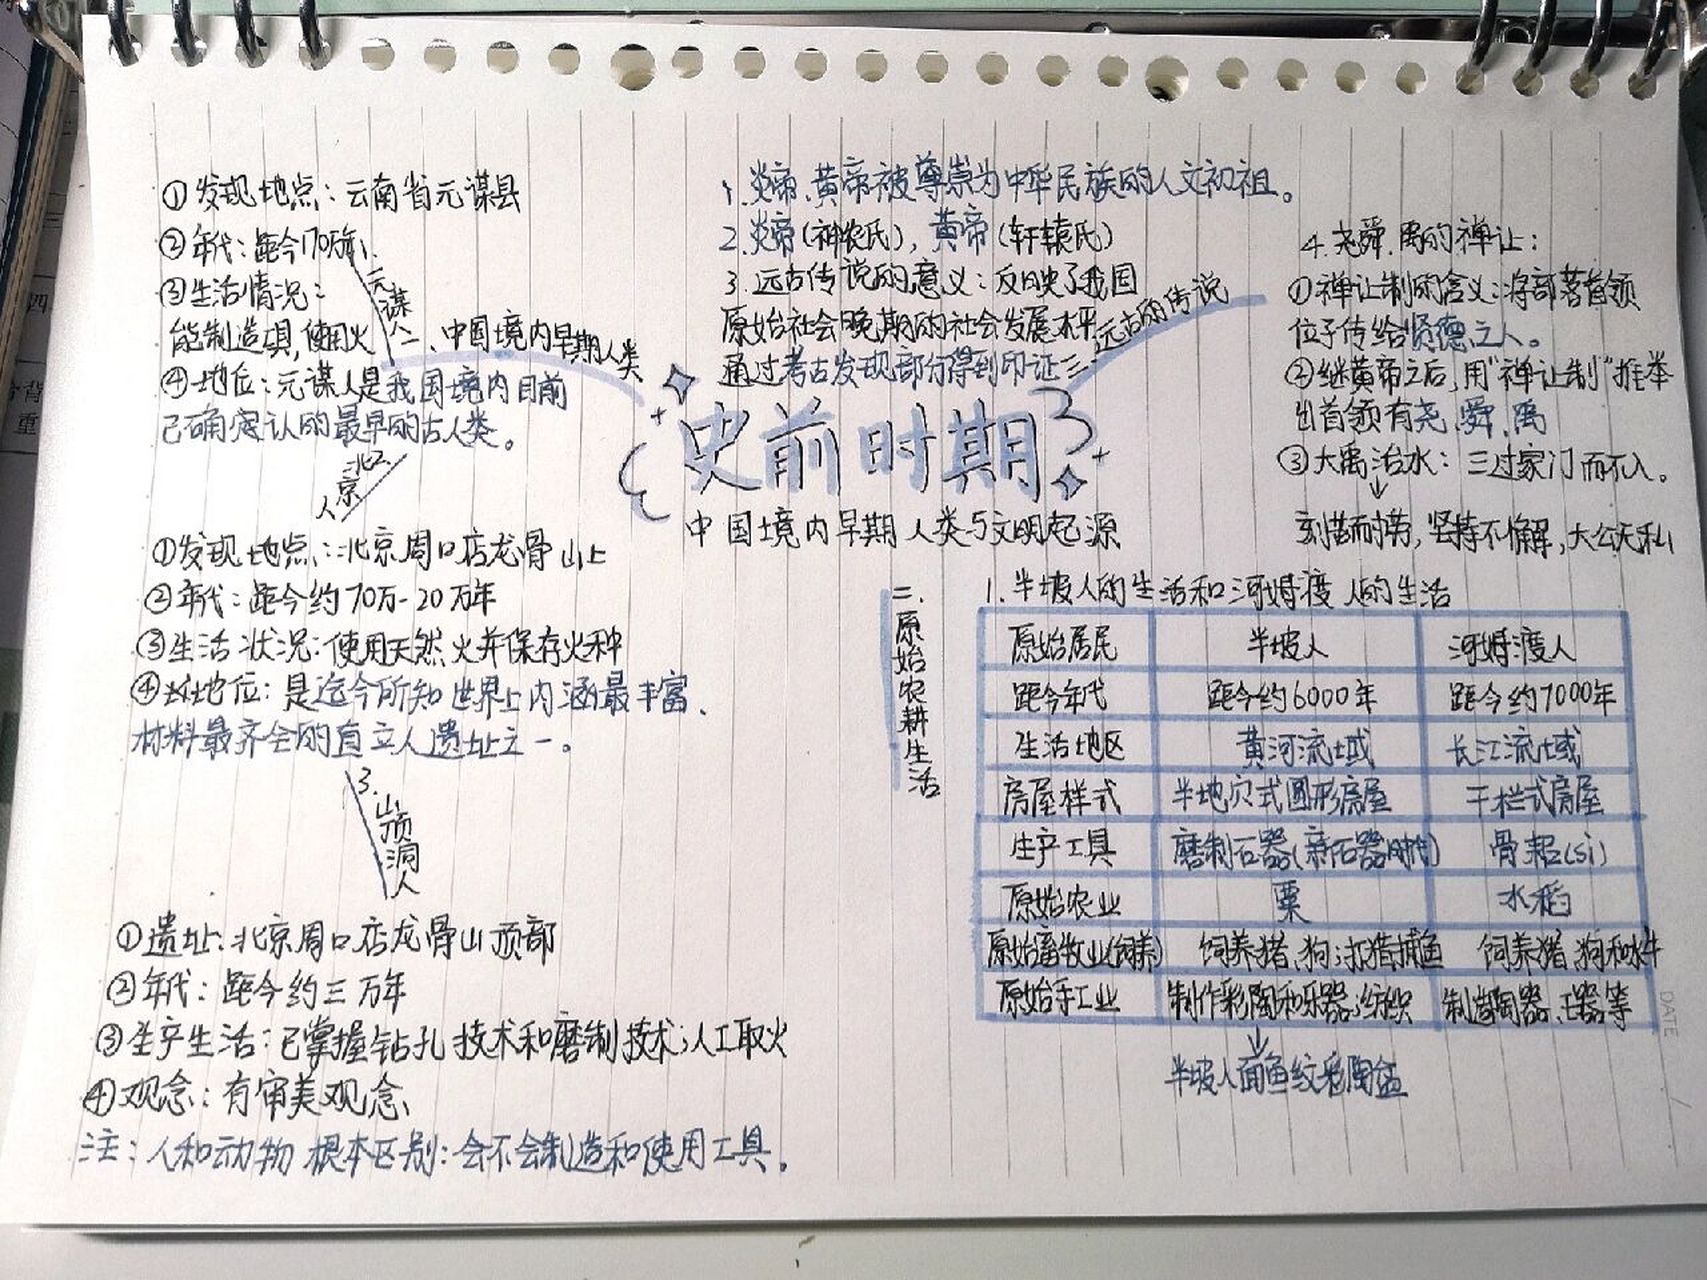 史前时期
中国境内早期人类与文明起源
一、中国境内早期人类
元谋人
①发现地点：云南省元谋县
②年代：距今170万年、
③生活情况：
能制造工具,使用火
④地位：元谋人是我国境内目前
已确定认的最早的古人类。
2.北京人
①发现地点：北京周口店龙骨山上
②年代：距今约70万-20万年
③生活状况：使用天然火并保存火种
④地位：是迄今所知世界上内涵最丰富、
材料最齐全的直立人遗址之一。
3.山顶洞人
①遗址：北京周口店龙骨山顶部
②年代：距今约三万年
③生产生活：已掌握钻孔技术和磨制技术；人工取火
④观念：有审美观念、
注：人和动物根本区别：会不会制造和使用工具。
二.原始农耕生活
1.半坡人的生活和河姆渡人的生活
原始居民 半坡人 河姆渡人
距今年代 距今约6000年 距今约7000年
生活地区 黄河流域 长江流域
房屋样式 半地穴式圆形房屋 干栏式房屋
生产工具 磨制石器(新石器时代) 骨耜(si)
原始农业 粟 水稻
原始畜牧业(饲养) 饲养猪、狗；打猎捕鱼 饲养猪、狗和水牛
原始手工业 制作彩陶和乐器；纺织 制造陶器、玉器等
半坡人面鱼纹彩陶盆
三远古的传说
1.炎帝、黄帝被尊崇为中华民族的人文初祖。
2.炎帝(神农氏),黄帝(轩辕氏)
3.远古传说的意义：反映了我国
原始社会晚期的社会发展水平
通过考古发现部分得到印证
4.尧舜.禹的禅让：
①禅让制的含义：将部落首领
位子传给贤德之人。
②继黄帝之后,用"禅让制"推举
出首领有尧.舜.禹
③大禹治水：三过家门而不入。
刻苦耐劳,坚持不懈,大公无私
DATE